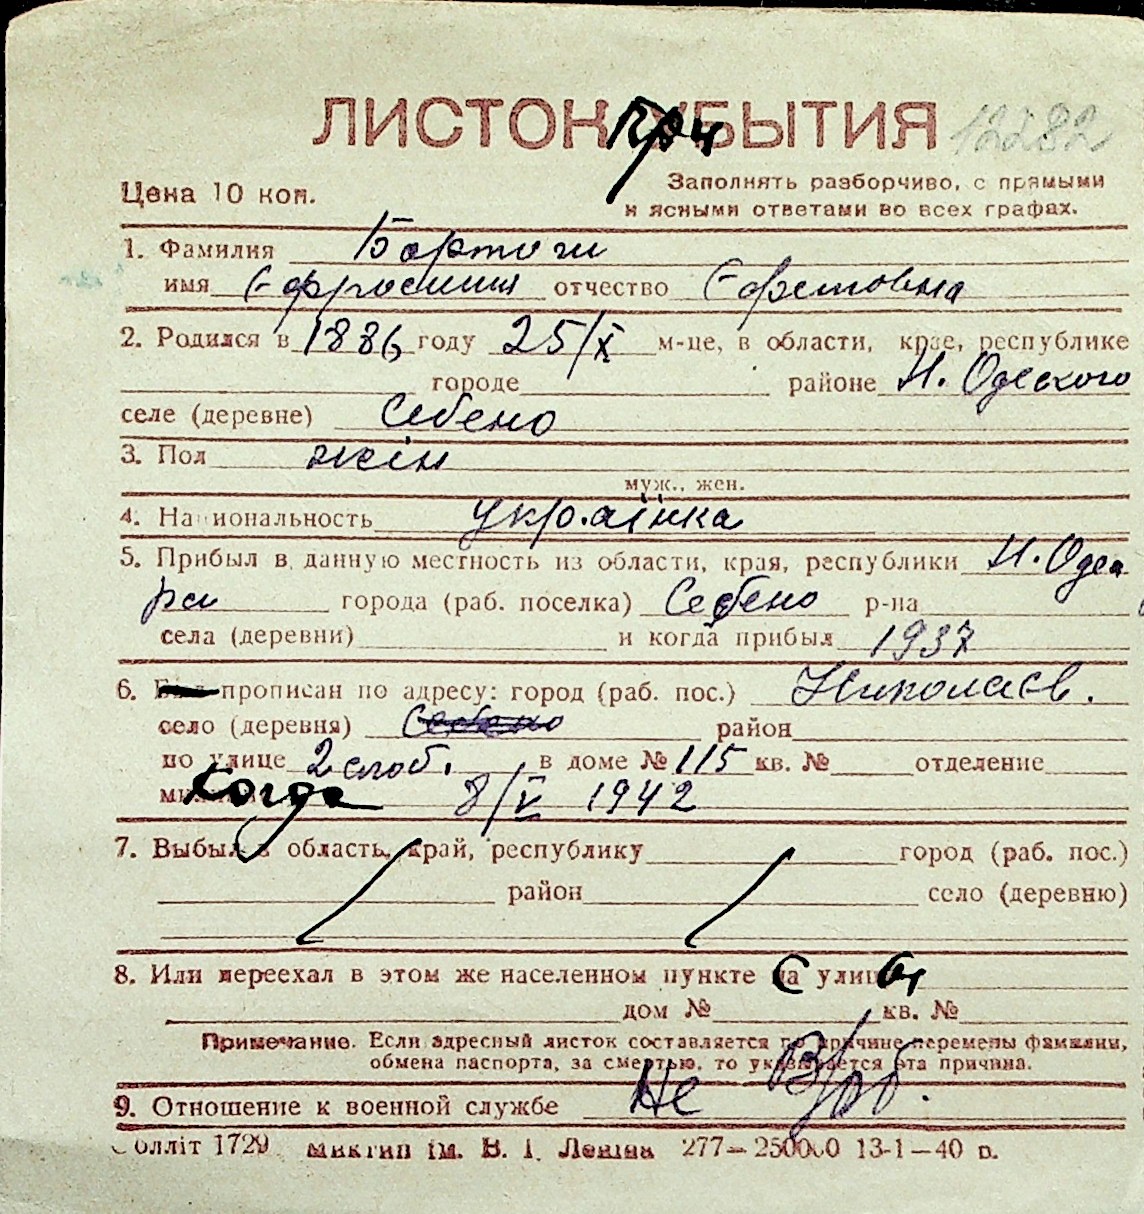 ЛИСТОК УБЫТИЯ 12282
При
Цена 10 коп. Заполнять разборчиво, с прямыми
и ясными ответами во всех графах.
1. Фамилия
имя Ефросиния отчество
2. Родился в 1886 году 25/X м-це, в области, крае, республике
городе районе Н. Одеского
селе (деревне) Себено
3. Пол жін
муж., жен.
4. Национальность українка
5. Прибыл в данную местность из области, края, республики Н. Одес
рн города (раб. поселка) Себено р-на
села (деревни) и когда прибыл 1937
6. Был прописан по адресу: город (раб. пос.) Николаев.
село (деревня) Себено район
по улице 2 слоб. в доме № 115 кв. № отделение
когда 8/V 1942
7. Выбыл в область, край, республику город (раб. пос.)
район село (деревню)
8. Или переехал в этом же населенном пункте с улицы
дом № кв. №
Примечание. Если адресный листок составляется по причине перемены фамилии,
обмена паспорта, за смертью, то указывается эта причина.
9. Отношение к военной службе Не В/об.
Облліт 1729 Миктип ім. В. І. Леніна 277—250000 13-1—40 р.